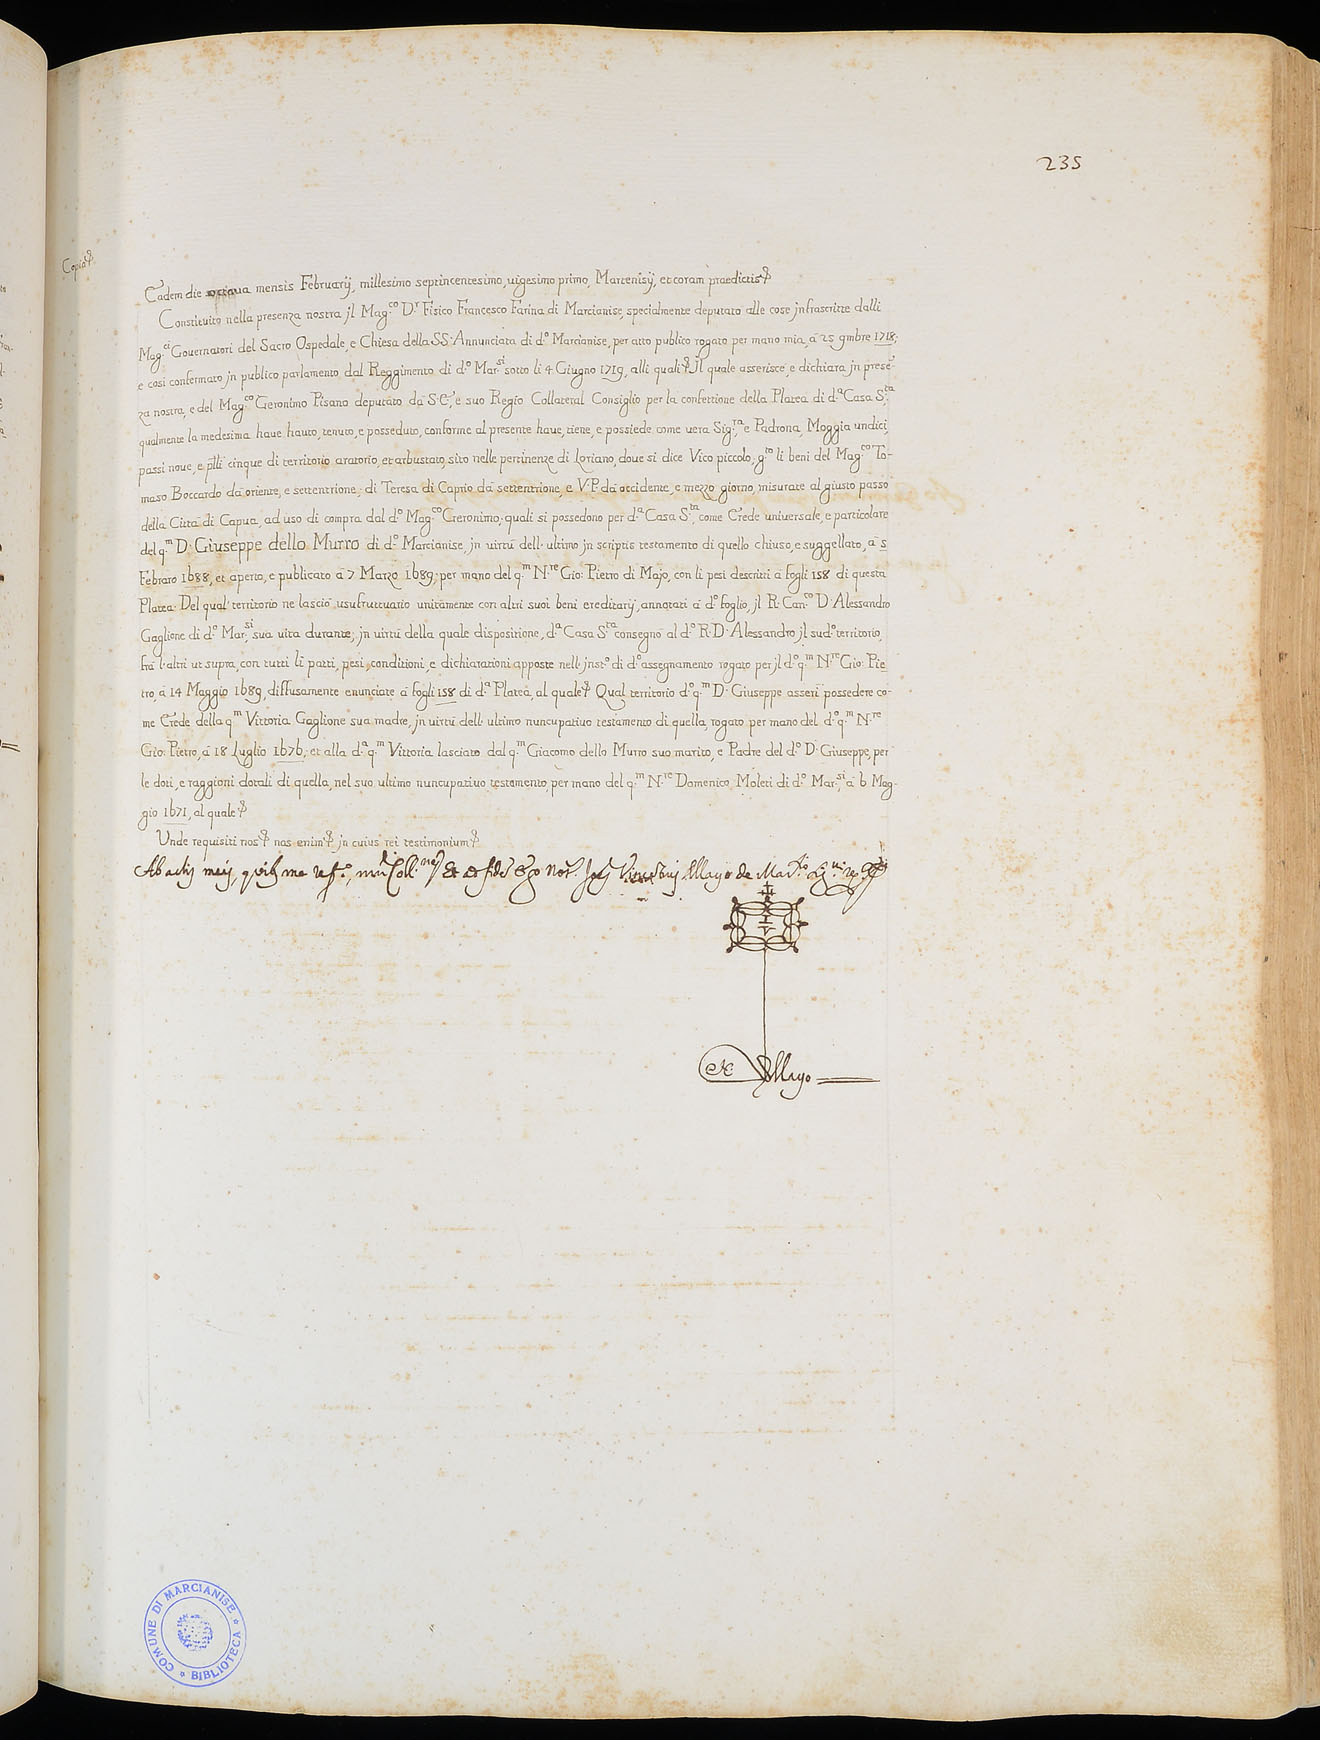 235
Copia
Eadem die octaua mensis Februarij, millesimo septincentesimo, uigesimo primo, Martenisij, et coram praedictis
Constituito nella presenza nostra jl Mag.co D.r Fisico Francesco Farina di Marcianise, specialmente deputato alle cose jnfrascritte dalli
Mag.ci Gouernatori del Sacro Ospedale, e Chiesa della SS: Annunciata di d.o Marcianise, per atto publico rogato per mano mia, à 25 9mbre 1718;
e così confermato jn publico parlamento dal Reggimento di d.o Mar.si sotto li 4 Giugno 1719, alli quali Jl quale asserisce, e dichiara jn presē-
za nostra, e del Mag.co Geronimo Pisano deputato da S.E., e suo Regio Collateral Consiglio per la confettione della Platea di d.a Casa S.ta
qualmente la medesima haue hauto, tenuto, e posseduto, conforme al presente haue, tiene, e possiede come uera Sig.ra e Padrona, Moggia undici,
passi noue, e p̄lli cinque di territorio aratorio, et arbustato, sito nelle pertinenze di Loriano, doue si dice Vico piccolo, g.to li beni del Mag.co To-
maso Boccardo da oriente, e settentrione; di Teresa di Caprio da settentrione, e V.P. da occidente, e mezzo giorno, misurate al giusto passo
della Città di Capua, ad uso di compra dal d.o Mag.co Geronimo; quali si possedono per d.a Casa S.ta, come Erede uniuersale, e particolare
del q.m D. Giuseppe dello Murro di d.o Marcianise, jn uirtù dell' ultimo jn scriptis testamento di quello chiuso, e suggellato, à 5
Febraro 1688, et aperto, e publicato à 7 Marzo 1689; per mano del q.m N.re Gio: Pietro di Majo, con li pesi descritti à fogli 158 di questa
Platea. Del qual territorio ne lasciò usufruttuario unitamente con altri suoi beni ereditarij, annotati à d.o foglio, jl R. Can.co D. Alessandro
Gaglione di d.o Mar.si, sua uita durante; jn uirtù della quale disposizione, d.a Casa S.ta consegnò al d.o R. D. Alessandro jl sud.o territorio,
frà l'altri ut supra, con tutti li patti, pesi, conditioni, e dichiarationi apposte nell' jnst.o di d.o assegnamento rogato per jl d.o q.m N.re Gio: Pie-
tro, à 14 Maggio 1689, diffusamente enunciate à fogli 158 di d.a Platea, al quale Qual territorio d.o q.m D. Giuseppe asserì possedere co-
me Erede della q.m Vittoria Gaglione sua madre, jn uirtù dell' ultimo nuncupatiuo testamento di quella, rogato per mano del d.o q.m N.re
Gio: Pietro, à 18 Luglio 1676; et alla d.a q.m Vittoria lasciato dal q.m Giacomo dello Murro suo marito, e Padre del d.o D. Giuseppe, per
le doti, e raggioni dotali di quella, nel suo ultimo nuncupatiuo testamento, per mano del q.m N.re Domenico Moleti di d.o Mar.si, à 6 Mag-
gio 1671, al quale
Unde requisiti nos nos enim jn cuius rei testimonium
Ab actis meis, quibus me Ego Not. Mayo de
Mayo
COMUNE DI MARCIANISE
BIBLIOTECA